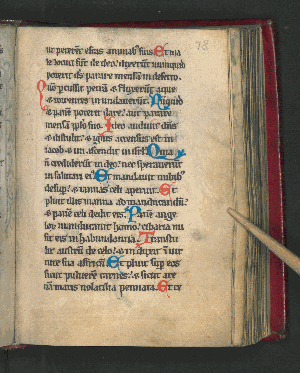 78
ut peterent escas animabus suis Et ma
le locuti sunt de deo dixerunt nunquid
poterit ds parare mensam in deserto
Qm percussit petram & fluxerunt aque
& torrentes inundaverunt Nunquid
& panem poterit dare aut parare
mensam pplo suo Ideo audivit dns
& distulit & ignis accensus est in
iacob & ira ascendit in isrl Quia
n crediderunt in deo nec speraverunt
in salutari ei Et mandavit nubib
desup & ianuas celi aperuit Et
pluit illis manna ad manducandum
& panem celi dedit eis Panem ange
lorum manducavit homo cibaria mi
sit eis in habundantia Transtu
lit austrum de celo & induxit in vir
tute sua affricum Et pluit sup eos
sicut pulverem carnes & sicut are
nam maris volatilia pennata Et ce